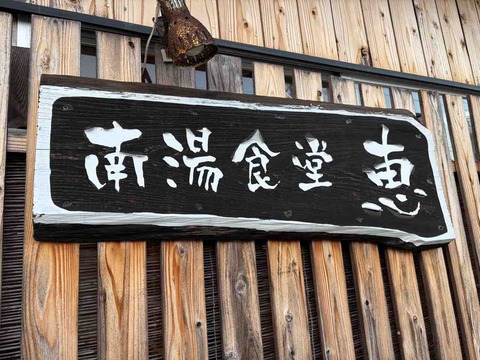 南湯食堂 恵